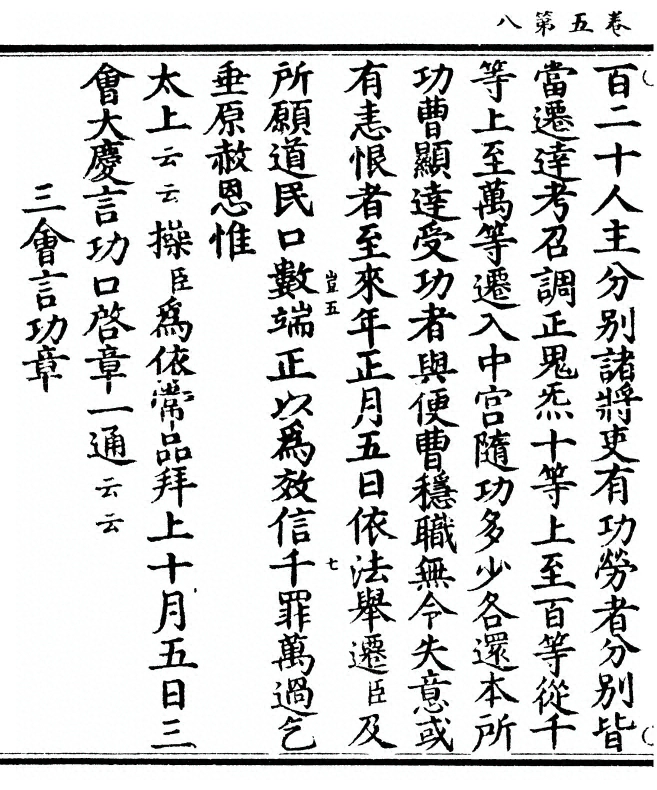 卷五第八
百二十人主分別諸將吏有功勞者分別皆
當遷達考召調正鬼炁十等上至百等從千
等上至萬等遷入中宮隨功多少各還本所
功曹顯達受功者與便曹穩職無令失意或
有恚恨者至來年正月五日依法舉遷臣及
所願道民口數端正以為效信千罪萬過乞
豈五
七
垂原赦恩惟
太上云云操臣為依常品拜上十月五日三
會大慶言功口啓章一通云云
三會言功章